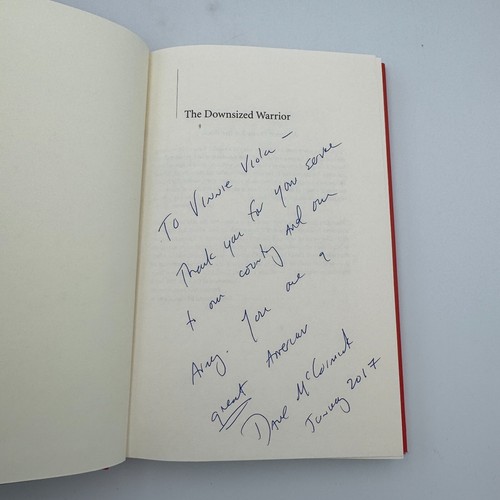 The Downsized Warrior
To Vinnie Viola —
Thank you for you service
to our country and our
Army. You are a
great American
Dave McCormick
January 2017